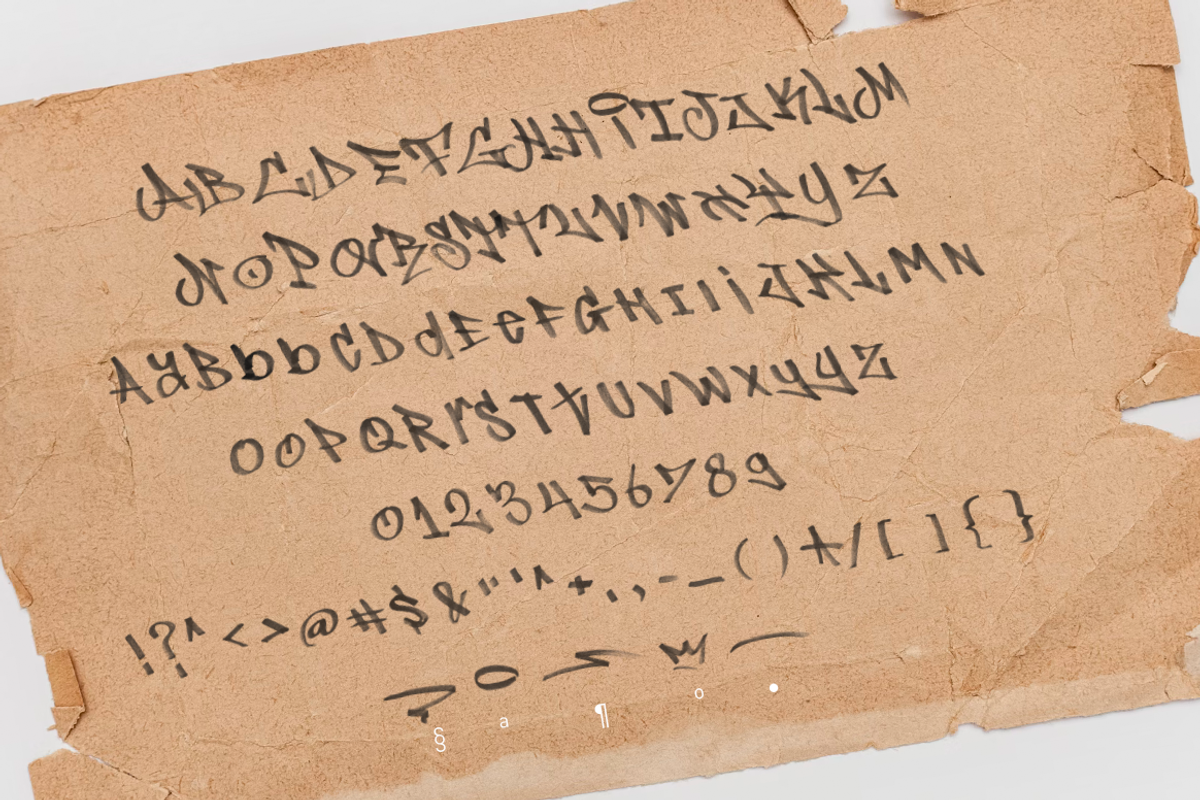 ABCDEFGHHIIJJKLM
NOPQRRSTTUVVWXYYZ
AaBbbCDdEeFGHIIijKLMN
OOPQRrSTtUVWXyyZ
0123456789
!?^<>@#$&"'^+.,-_()*/[]{}
§ a ¶ o •